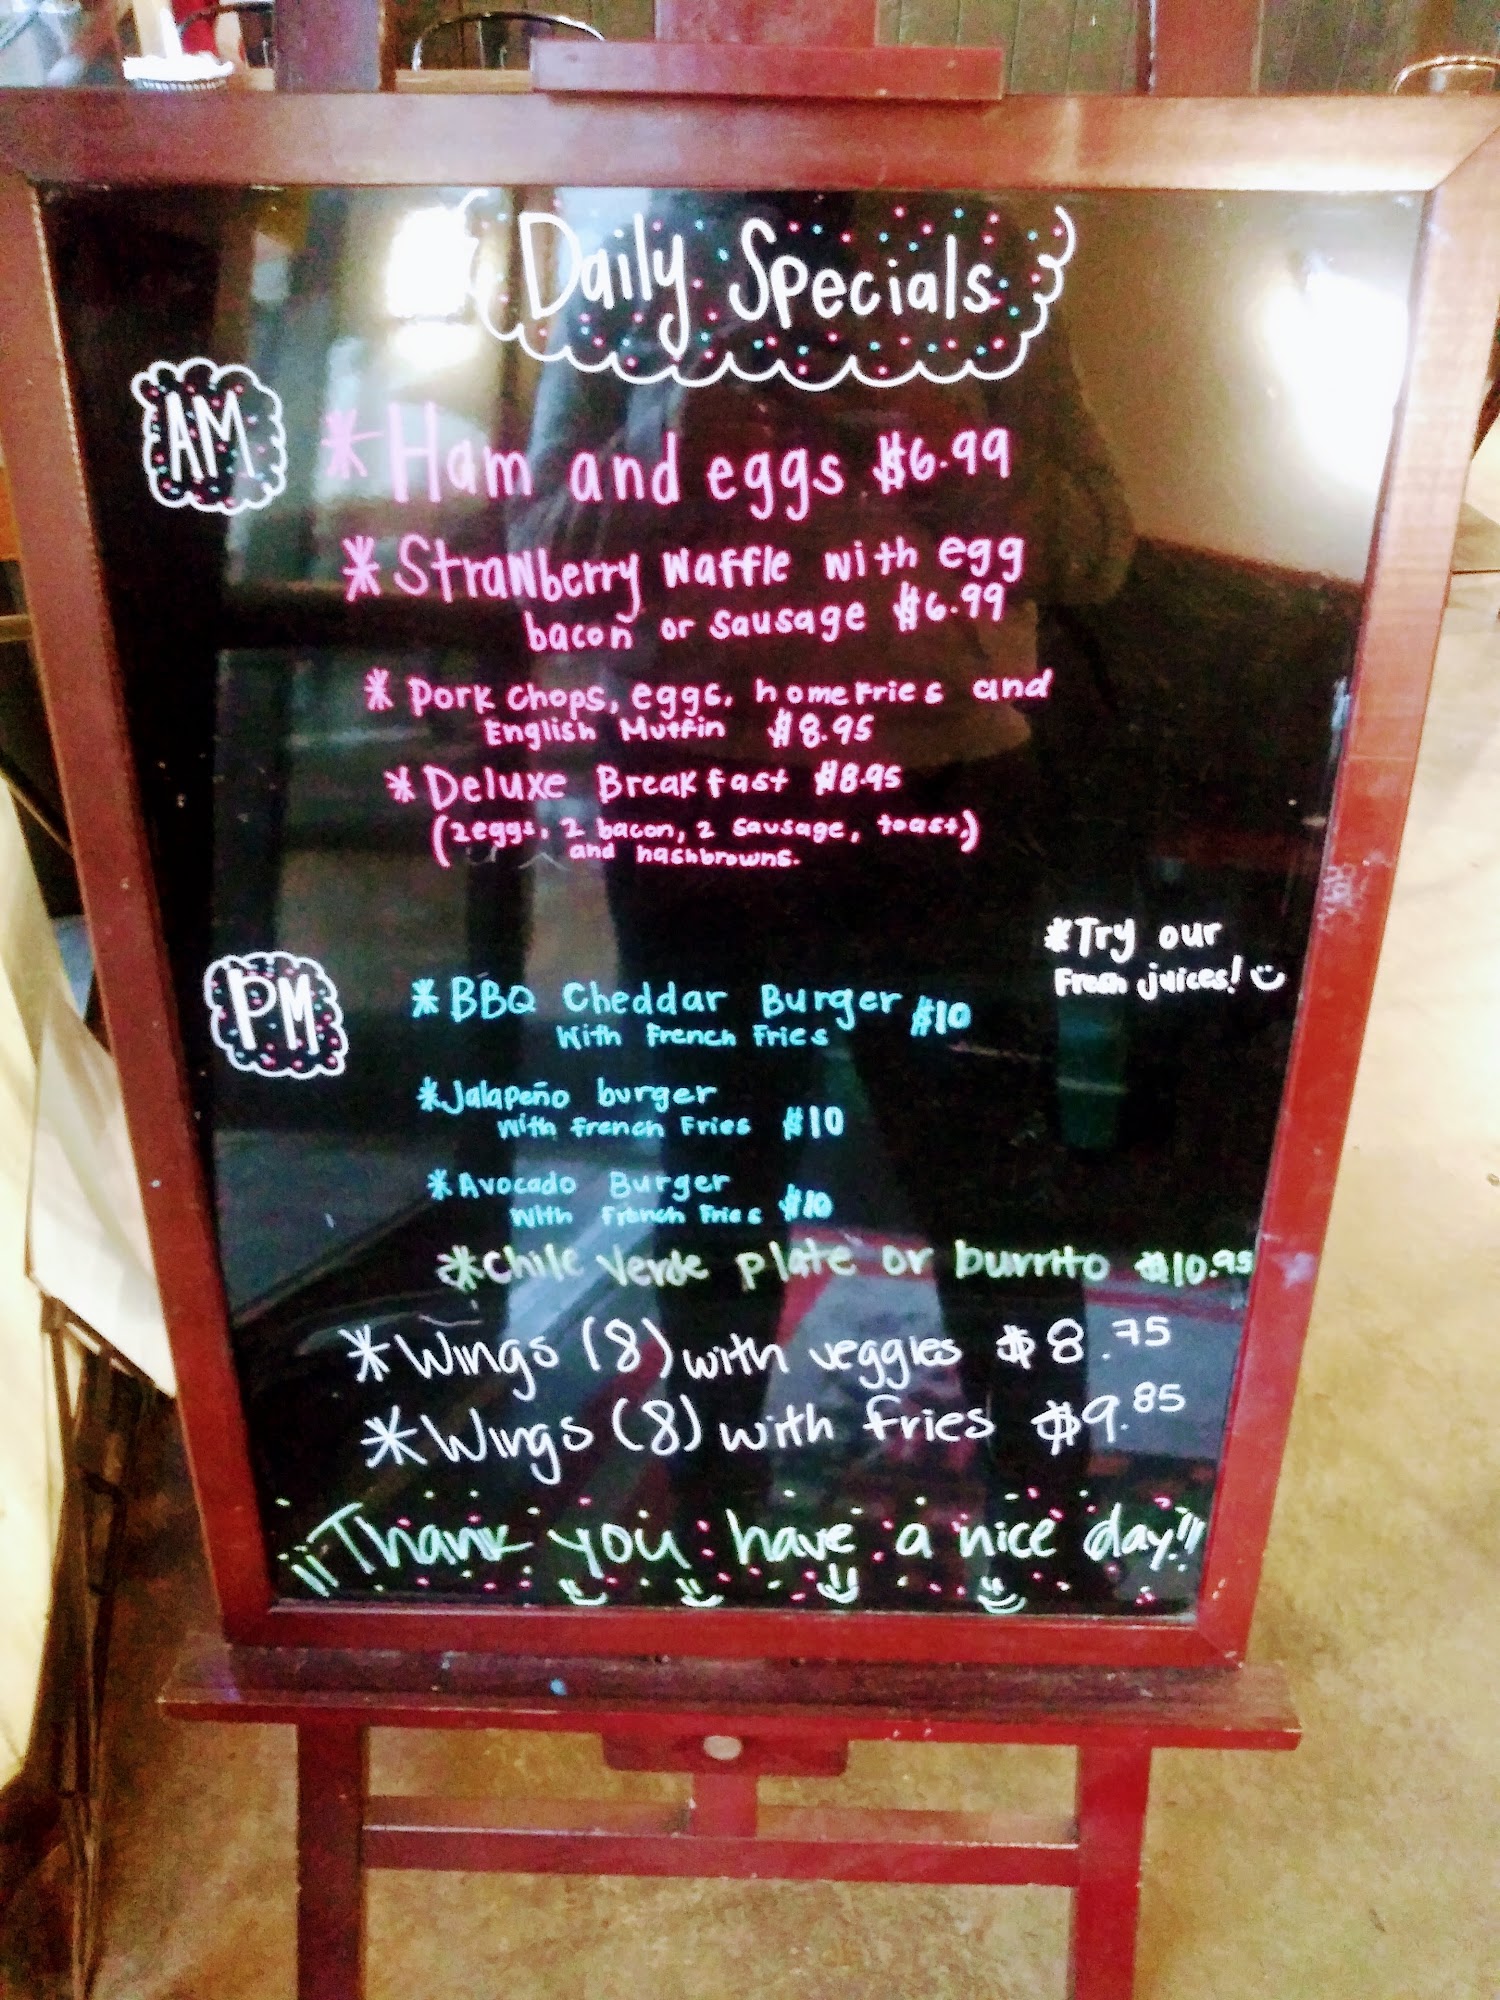 Daily Specials
AM
*Ham and eggs $6.99
*Strawberry waffle with egg
bacon or sausage $6.99
*Pork chops, eggs, homefries and
English Muffin $8.95
*Deluxe Breakfast $8.95
(2 eggs, 2 bacon, 2 sausage, toast,)
and hashbrowns.
*Try our
Fresh juices!
PM
*BBQ Cheddar Burger $10
With French Fries
*Jalapeño burger
With French Fries $10
*Avocado Burger
With French Fries $10
*Chile Verde plate or burrito $10.95
*Wings (8) with veggies $8.75
*Wings (8) with fries $9.85
¡¡Thank you have a nice day!!